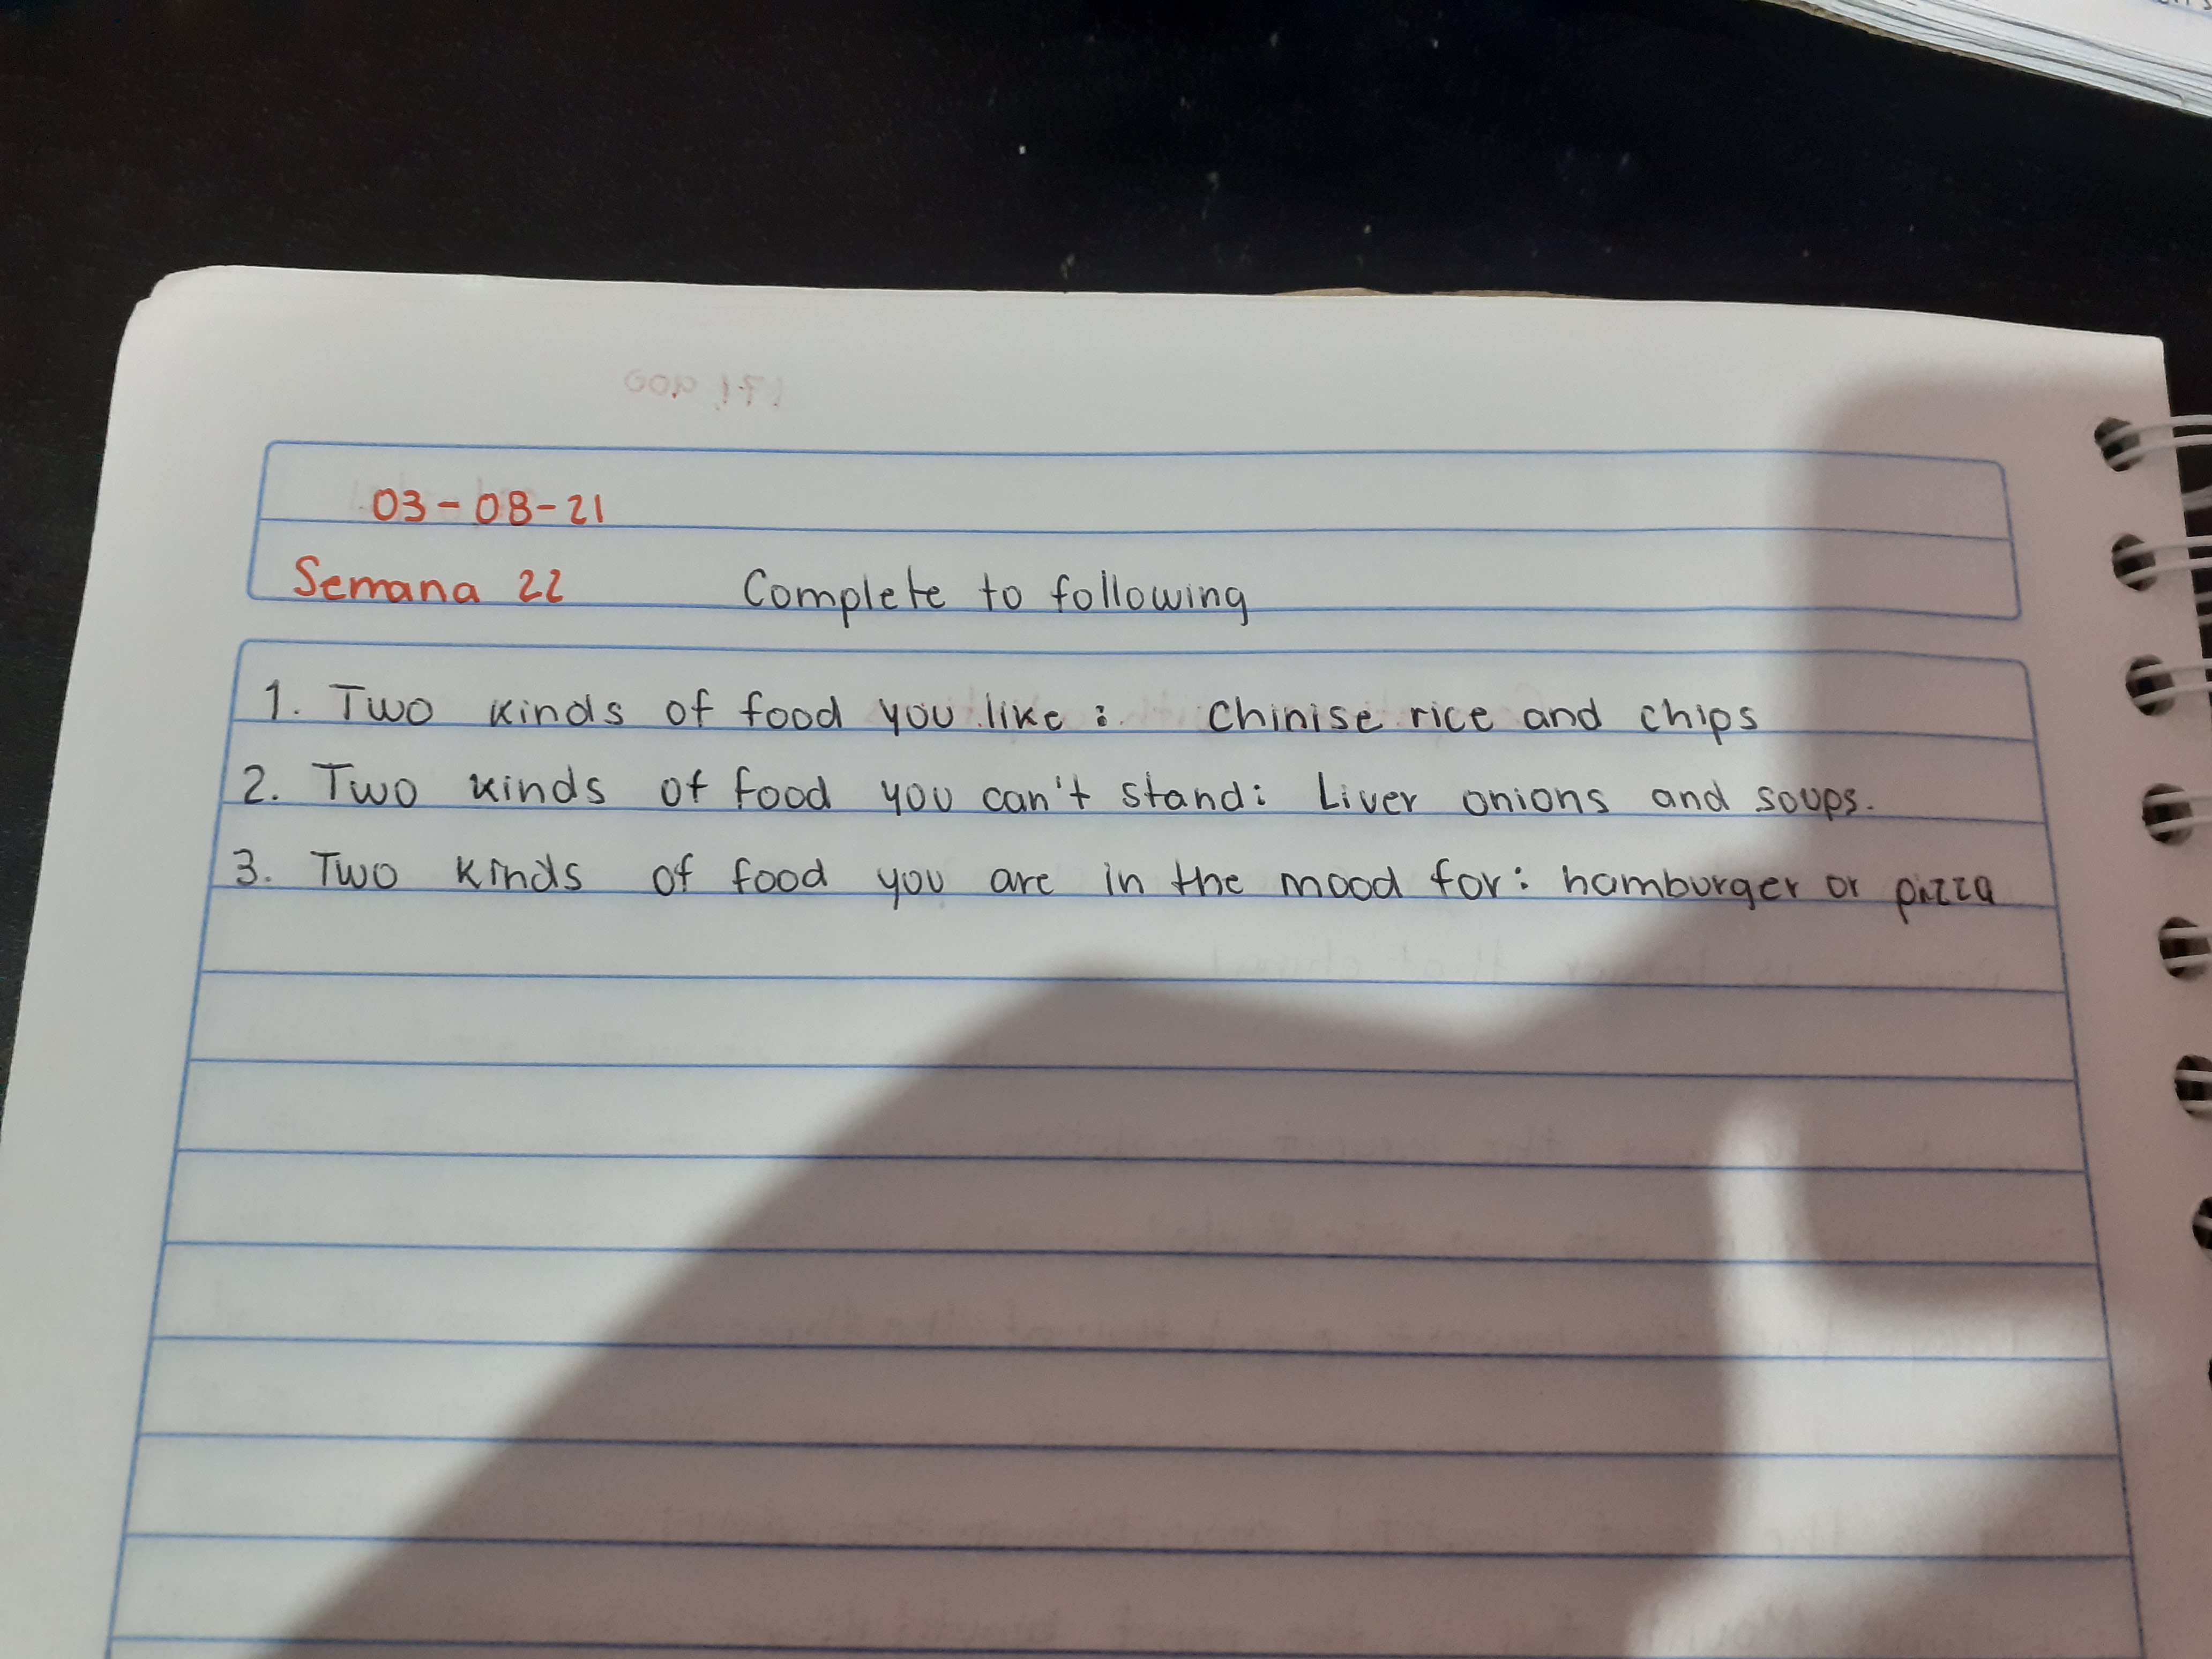 03-08-21
Semana 22 Complete to following
1. Two kinds of food you like: Chinise rice and chips
2. Two kinds of food you can't stand: Liver onions and soups.
3. Two kinds of food you are in the mood for: hamburger or pizza